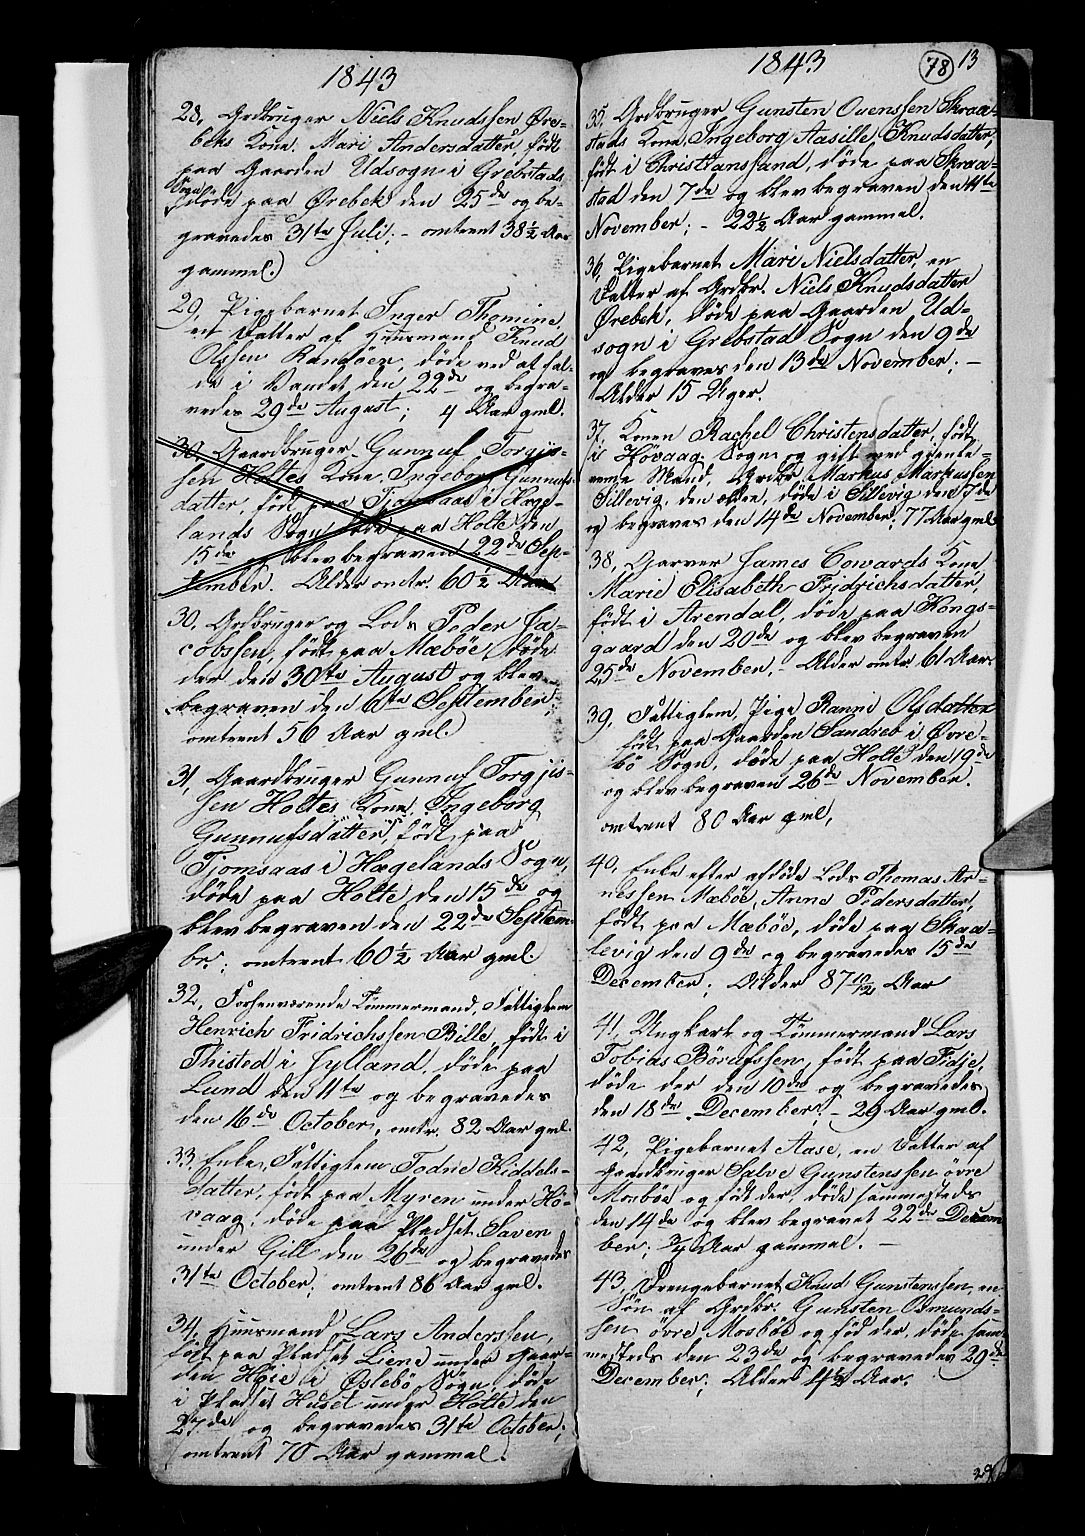 1843
28, Grdbruger Niels Knudssen Øre-
beks Kone, Mari Andersdatter, født
paa Gaarden Udsogn i Grebstads
Sogn,
døde paa Ørebek den 25de og be-
gravedes 31te Juli; - omtrent 38 1/2 Aar
gammel.
29, Pigebarnet Inger Thomine,
en Datter af Huusmand Knud
Olssen Randøen, døde ved at fal-
de i Vandet den 22de og begra-
vedes 29de August; 4 Aar gml.
30, Gaardbruger Gunnuf Torgjus-
sen Holtes Kone, Ingeborg Gunnufs-
datter, født paa Tjomsaas i Hæge-
lands Sogn, døde paa Holte den
15de og blev begraven 22de Sep-
tember. Alder omtr. 60 1/2 Aar
30, Grdbruger og Lods Peder Ja-
cobssen, født paa Mæbøe, døde
der den 30te August og blev
begraven den 6te September,
omtrent 56 Aar gml.
31, Gaardbruger Gunnuf Torgjus-
sen Holtes Kone, Ingeborg
Gunnufsdatter, født paa
Tjomsaas i Hægelands Sogn,
døde paa Holte den 15de og
blev begraven den 22de Septem-
br.; omtrent 60 1/2 Aar gml.
32, Forhenværende Tømmermand, Fattiglem
Henrich Fridrichssen Bille, født i
Thisted i Jylland, døde paa
Lund den 11te og begravedes
den 16de October, omtr. 82 Aar gml.
33, Enke, Fattiglem Todne Kiddels-
datter, født paa Myren under Hø-
vaag, døde paa Pladset Saven
under Gill den 26de og begravedes
31te October; omtrent 86 Aar gml.
34, Huusmand Lars Anderssen,
født paa Pladset Liene under Gaar-
den Høie i Øslebø Sogn, døde
i Pladset Huset under Holte den
27de og begravedes 31te October;
omtrent 70 Aar gammel.
1843
78
13
35, Grdbruger Gunsten Ouenssen Skraa-
stads Kone, Ingeborg Aasille Knudsdatter,
født i Christianssand, døde paa Skraa-
stad den 7de og blev begraven den 11te
November; - 22 1/2 Aar gammel.
36, Pigebarnet Mari Nielsdatter, en
Datter af Grdbr. Niels Knudsdatter
Ørebek, døde paa Gaarden Ud-
sogn i Grebstad Sogn den 9de
og begraves den 13de November; -
Alder 15 Uger.
37, Konen Rachel Christensdatter, født
i Høvaag Sogn og gift med gjenle-
vende Mand, Grdbr. Markus Markussen
Sillevig, den ældre, døde i Sillevig den 7de
og begraves den 14de November; 77 Aar gml.
38, Garver James Cowards Kone
Marie Elisabeth Fridrichsdatter,
født i Arendal, døde paa Kongs-
gaard den 20de og blev begraven
25de November, - Alder omtr. 61 Aar.
39, Fattiglem, Pige Ranni Olsdatter
født paa Gaarden Sandrieb i Øvre-
bø Sogn, døde paa Holte den 19de
og blev begraven 26de November.
omtrent 80 Aar gml,
40, Enke efter afdøde Lods Thomas Ar-
nessen Mæbøe, Anne Pedersdatter,
født paa Mæbøe, døde paa Skaa-
levig den 9de og begravedes 15de
December; Alder 87 10/12 Aar
41, Ungkarl og Tømmermand Lars
Tobias Børufssen, født paa Fidje,
døde der den 10de og begravedes
den 18de December; - 29 Aar gml.
42, Pigebarnet Aase, en Datter af
Gaardbruger Salve Gunstenssen øvre
Mosbøe og født der, døde sammesteds
den 14de og blev begravet 22de Decem-
ber; 3/4 Aar gammel. -
43, Drengebarnet Knud Gunstenssen, en
Søn af Grdbr. Gunsten Osmunds-
sen øvre Mosbøe og fød der, døde sam-
mesteds den 23de og begravedes 29de
December; Alder Aar.